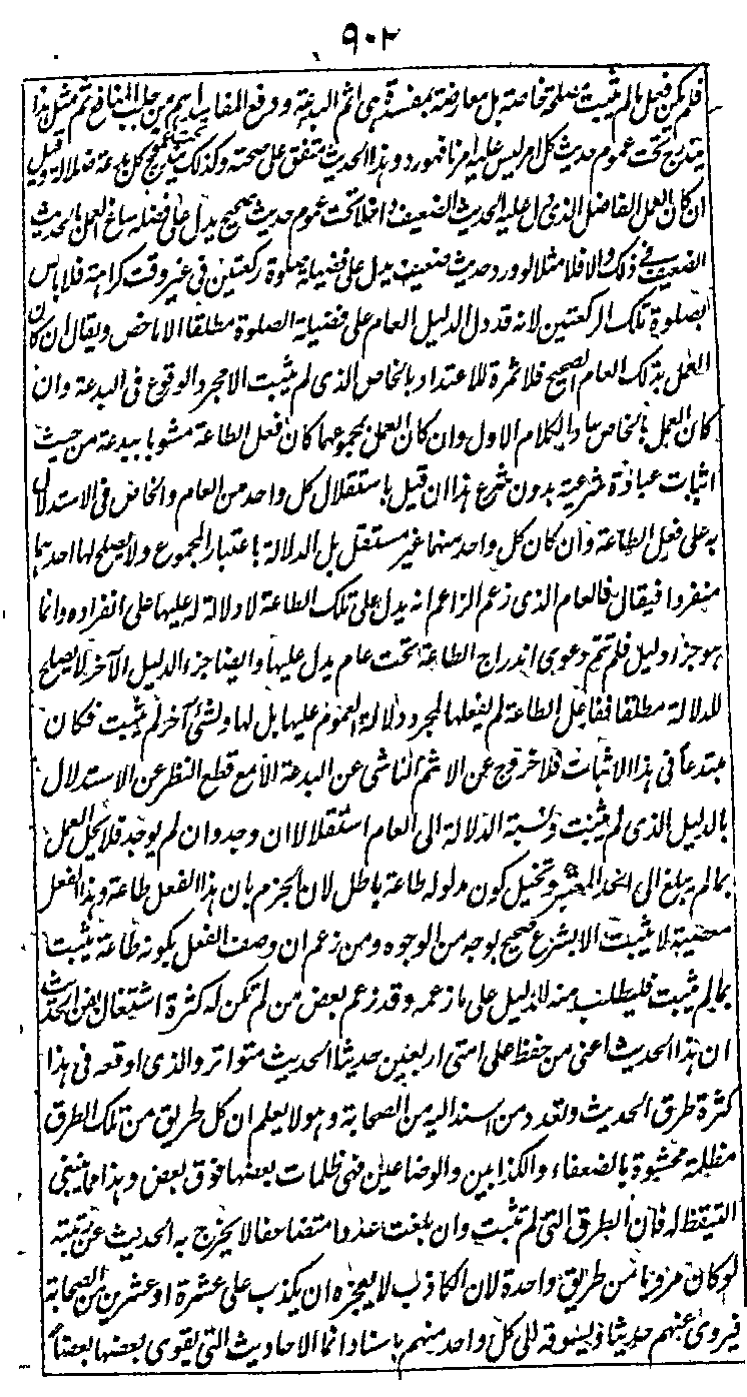 ٩٠٢
فلم يكن فعل ما لم يثبت مصلحة خاصة بل معارضة بمفسدة هى اثم البدعة ودفع المفاسد اهم من جلب المنافع ثم مثل هذا
يندرج تحت عموم حديث كل امر ليس عليه امرنا فهو رد وهذا الحديث متفق على صحته وكذلك يندرج تحت عموم كل بدعة ضلالة وقيل
ان كان العمل الفاضل الذى دل عليه الحديث الضعيف داخلا تحت عموم حديث صحيح يدل على فضله ساغ العمل بالحديث
الضعيف فى ذلك والا فلا مثلا لو ورد حديث ضعيف يدل على فضيلة صلوة ركعتين فى غير وقت كراهة فلا باس
بصلوة تلك الركعتين لانه قد دل الدليل العام على فضيلة الصلوة مطلقا الا ما خص ويقال ان كان
العمل بذلك العام الصحيح فلا ثمرة للاعتداد بالخاص الذى لم يثبت الا مجرد الوقوع فى البدعة وان
كان العمل بالخاص عاد الكلام الاول وان كان العمل بمجموعهما كان فعل الطاعة مشوبا ببدعة من حيث
اثبات عبادة شرعية بدون شرع هذا ان قيل باستقلال كل واحد من العام والخاص فى الاستدلال
به على فعل الطاعة وان كان كل واحد منهما غير مستقل بل الدلالة باعتبار المجموع ولا يصلح لها احدهما
منفردا فيقال فالعام الذى زعم الزاعم انه يدل على تلك الطاعة لا دلالة له عليها على انفراده وانما
هو جزء دليل فلم تتم دعوى اندراج الطاعة تحت عام يدل عليها وايضا جزء الدليل الآخر لا يصلح
للدلالة مطلقا ففاعل الطاعة لم يفعلها لمجرد دلالة العموم عليها بل لها ولشئ آخر لم يثبت فكان
مبتدعا فى هذا الاثبات فلا خروج عن الاثم الناشى عن البدعة الا مع قطع النظر عن الاستدلال
بالدليل الذى لم يثبت ونسبة الدلالة الى العام استقلالا ان وجد وان لم يوجد فلا يحل العمل
بما لم يبلغ الى الحد المعتبر وتخيل كون مدلوله طاعة باطل لان الجزم بان هذا الفعل طاعة وهذا الفعل
معصية لا يثبت الا بشرع صحيح بوجه من الوجوه ومن زعم ان وصف الفعل بكونه طاعة يثبت
بما لم يثبت فليطلب منه الدليل على ما زعمه وقد زعم بعض من لم تكن له كثرة اشتغال بفن الحديث
ان هذا الحديث اعنى من حفظ على امتى اربعين حديثا الحديث متواتر والذى اوقعه فى هذا
كثرة طرق الحديث وتعدد من اسند اليه من الصحابة وهو لا يعلم ان كل طريق من تلك الطرق
مظلمة محشوة بالضعفاء والكذابين والوضاعين فهى ظلمات بعضها فوق بعض وهذا مما ينبغى
التيقظ له فان الطرق التى لم تثبت وان بلغت عددا متضاعفا لا يخرج به الحديث عن رتبته
لو كان مرويا من طريق واحدة لان الكاذب لا يعجزه ان يكذب على عشرة او عشرين من الصحابة
فيروى عنهم حديثا ويسوقه الى كل واحد منهم باسناد انما الاحاديث التى يقوى بعضها بعضا